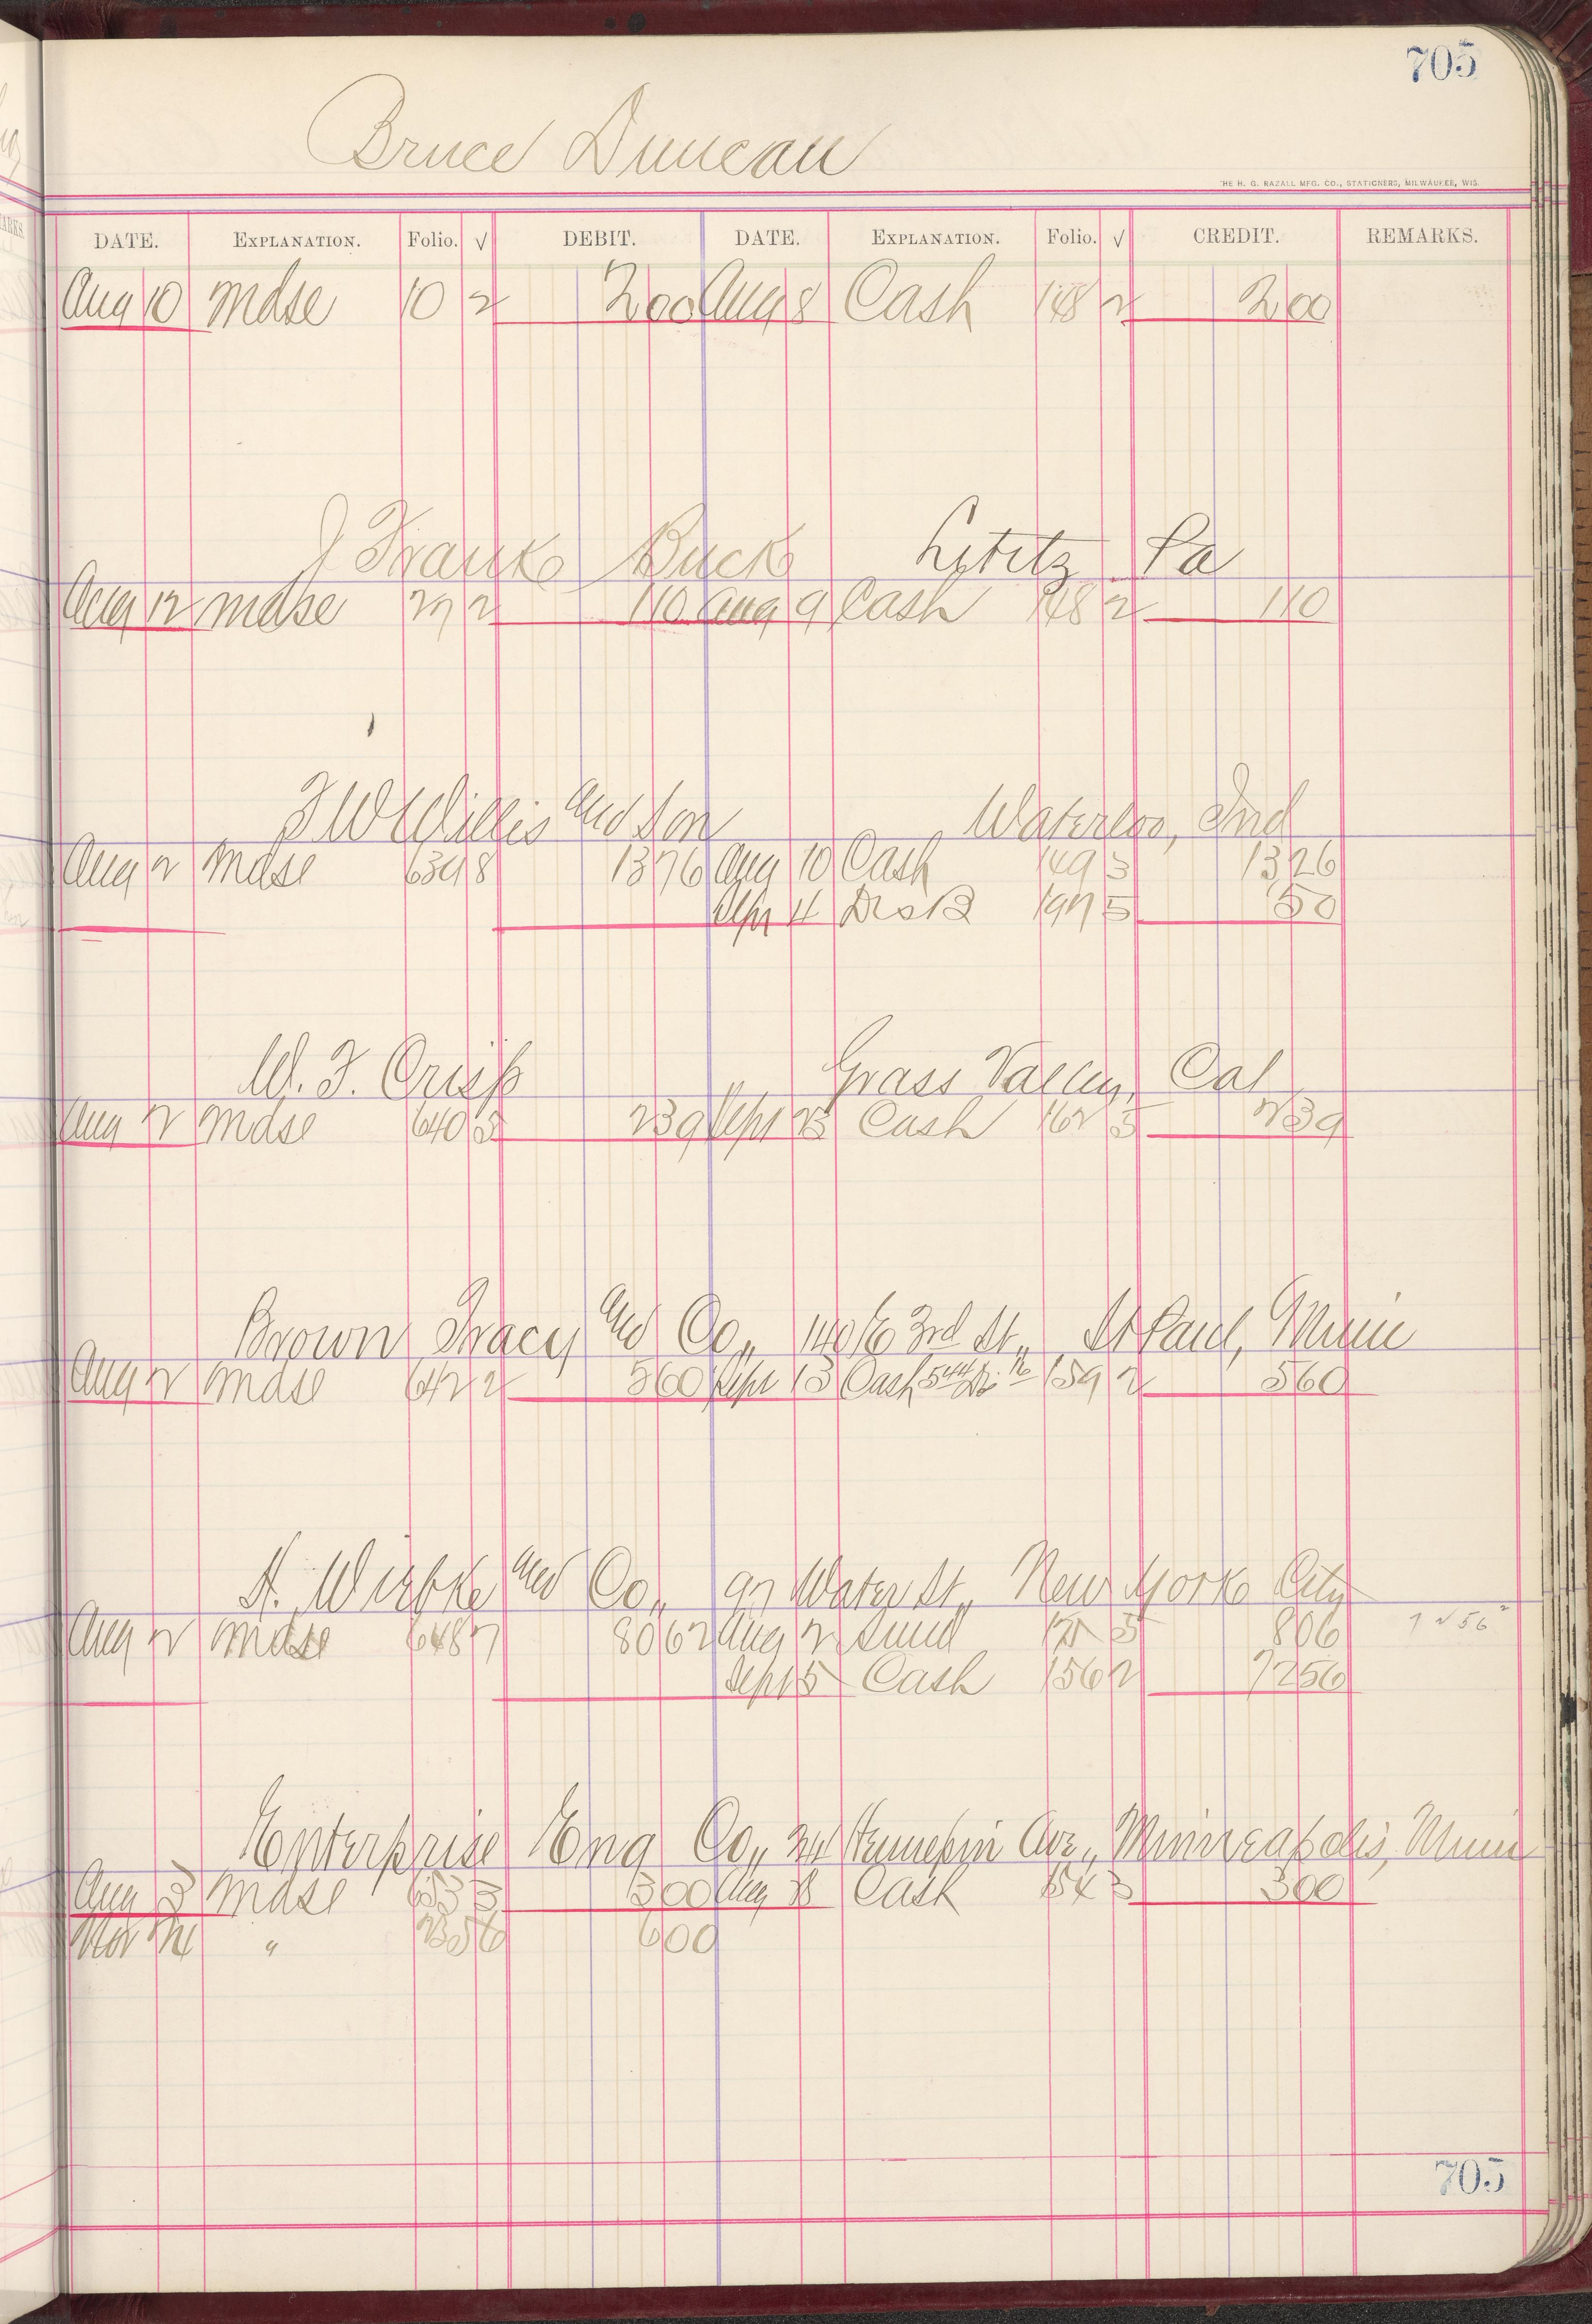 705
Bruce Duncan
THE H. G. RAZALL MFG. CO., STATIONERS, MILWAUKEE, WIS.
DATE. EXPLANATION. Folio. √ DEBIT. DATE. EXPLANATION. Folio. √ CREDIT. REMARKS.
Aug 10 Mdse 10 2 2 00 Aug 8 Cash 148 2 2 00
J Frank Buck Lititz Pa
Aug 12 Mdse 27 2 1 10 Aug 9 Cash 148 2 1 10
F W Willis and Son Waterloo, Ind
Aug 2 Mdse 639 8 13 76 Aug 10 Cash 149 3 13 26
Sept 4 197 5 50
W. F. Crisp Grass Valley, Cal
Aug 2 Mdse 640 3 2 39 Sept 23 Cash 162 5 2 39
Brown Tracy and Co., 140 E 3rd St., St Paul, Minn
Aug 2 Mdse 642 2 5 60 Sept 13 Cash 5 44 Dis 16 159 2 5 60
H. Wiebke and Co., 97 Water St., New York City
Aug 2 Mdse 648 7 80 62 Aug 2 Sund 5 8 06 72 56
Sept 5 Cash 156 2 72 56
Enterprise Eng Co., Hennepin Ave., Minneapolis, Minn
Aug 3 Mdse 653 3 3 00 Aug Cash 154 3 3 00
Nov 14 " 235 6 6 00
705